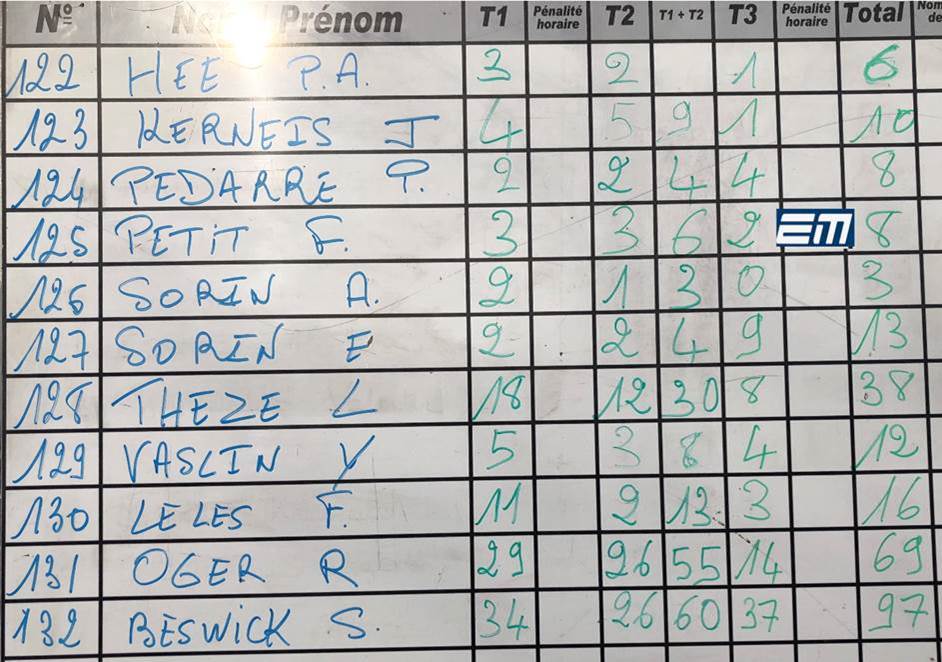 Nº Nom Prénom T1 Pénalité horaire T2 T1 + T2 T3 Pénalité horaire Total Nom de
122 HEE P.A. 3 2 1 6
123 KERNEIS J 4 5 9 1 10
124 PEDARRE P. 2 2 4 4 8
125 PETIT F. 3 3 6 2 EM 8
126 SORIN A. 2 1 3 0 3
127 SORIN E 2 2 4 9 13
128 THEZE L 18 12 30 8 38
129 VASLIN Y 5 3 8 4 12
130 LELES F. 11 2 13 3 16
131 OGER R 29 26 55 14 69
132 BESWICK S. 34 26 60 37 97